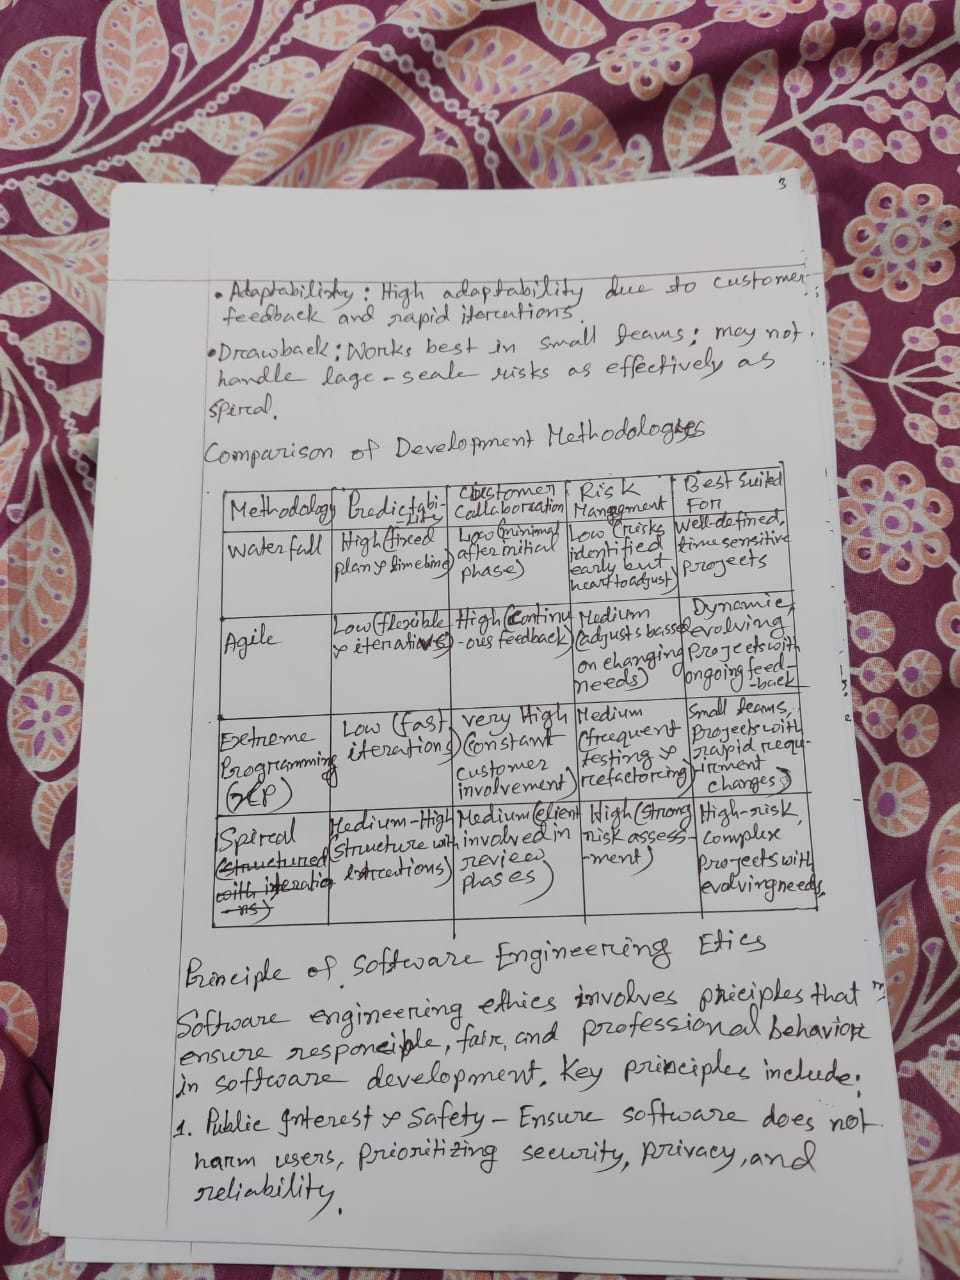 3
• Adaptabilisty: High adaptability due to customer
feedback and rapid itercations.
• Drawback: Works best in small teams; may not
handle lage-scale risks as effectively as
spiral.
Comparison of Development Methodologies
Methodology | Predictabi-lity | Customer Collaboration | Risk Management | Best Suited For
Waterfall | High (fixed plan & timeline) | Low (minimal after initial phase) | Low (risks identified early but heart to adjust) | Well-defined, time sensitive projects
Agile | Low (flexible & iterations) | High (continu-ous feedback) | Medium (adjusts bassed on changing needs) | Dynamic, evolving projects with ongoing feed-back
Extreme Programming (XP) | Low (fast iterations) | very High (constant customer involvement) | Medium (frequent testing & refactorcing) | Small teams, projects with rapid requ-irment changes)
Spiral (structured with iteratio-ns) | Medium-High (structure with itercations) | Medium (client involved in review phases) | High (strong risk assess-ment) | High-risk, complex projects with evolving needs.
Principle of Software Engineering Etics
Software engineering ethics involves priciples that
ensure responcible, fair, and professional behavior
in software development. Key principles include:
1. Public Interest & Safety - Ensure software does not
harm users, prioritizing security, privacy, and
reliability.